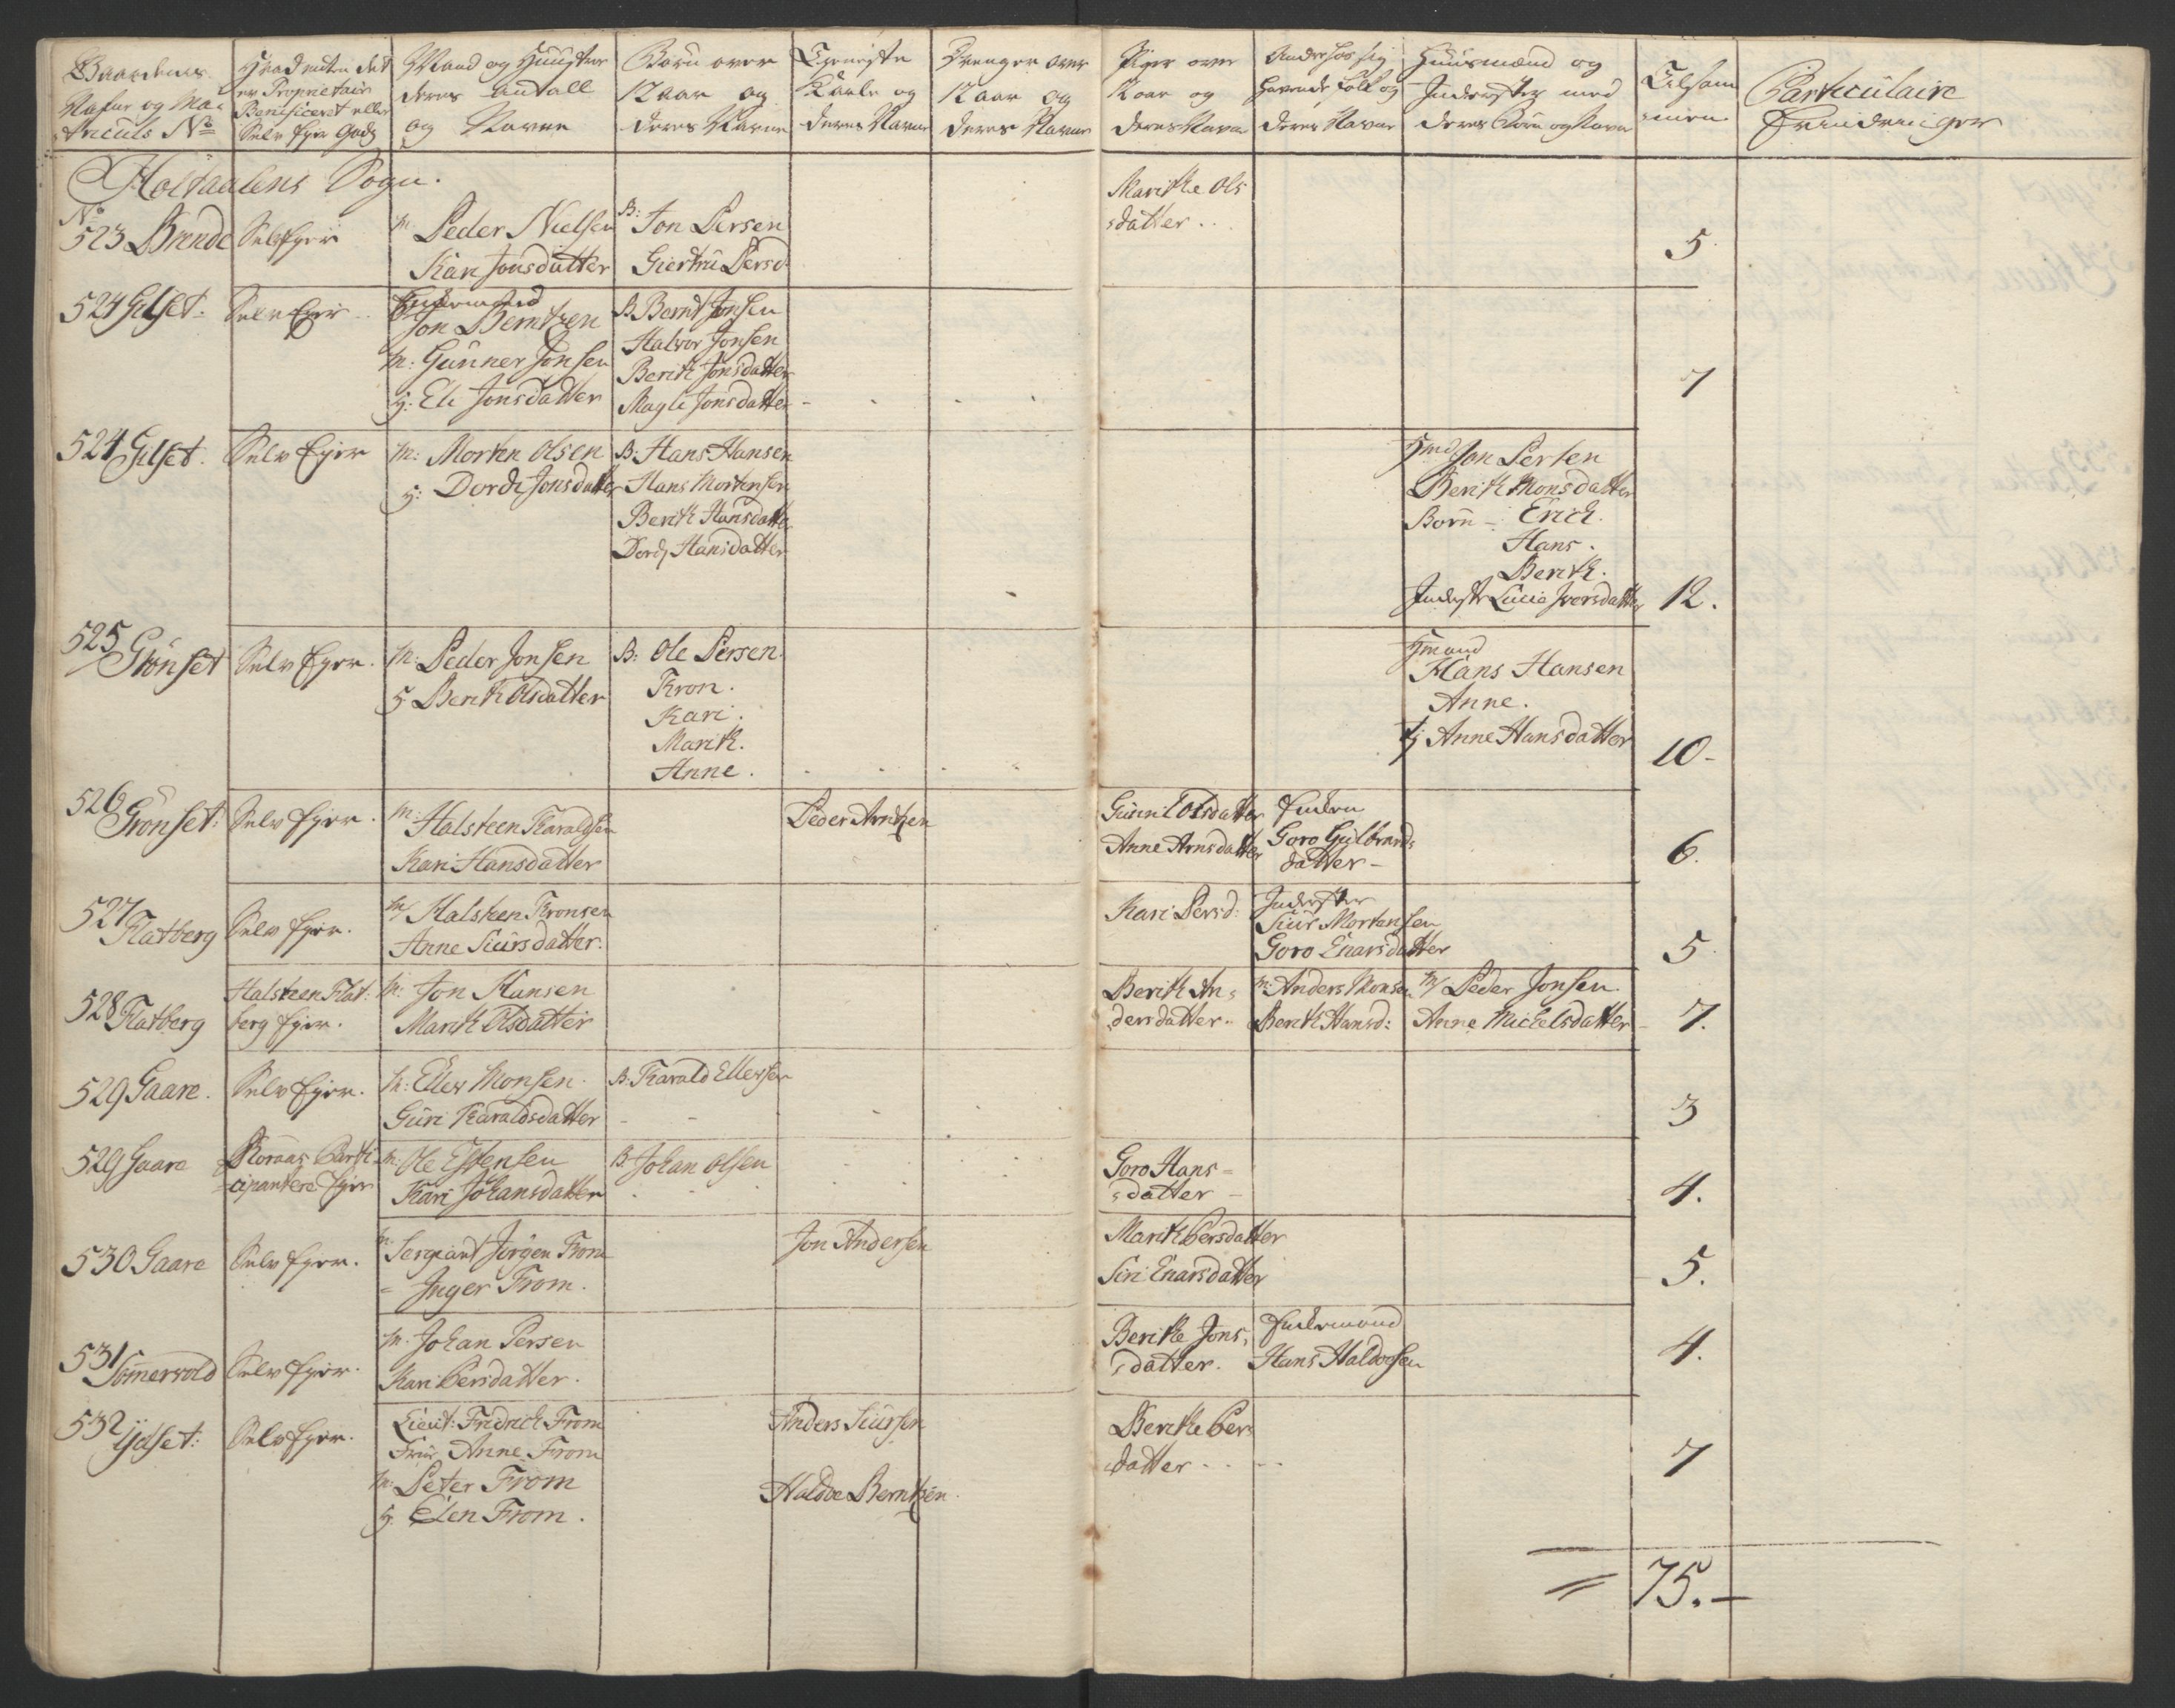 Gaardenes
Nafne og Ma-
triculs No
Hvad enten det
er Proprietair
Beneficeret eller
Selv Eyer Gods
Mand og Hustru
deres Antall
og Navne
Børn over
12 aar og
deres Navne
Tieneste
Karle og
deres Navne
Drenge over
12 aar og
deres Navne
Piger over
12 aar og
deres Navne
Andre hos sig
havende folk og
deres Navne
Huusmænd og
Inderster med
deres Børn og Navne
Tilsam
men
Particulaire
Erindringer
Holtaalens Sogn.
No
523 Brende Selv Eyer
M Peder Nielsen
Kari Jonsdatter
B: Jon Persen
Giertru Persd:
Marithe Ols
datter ..
5
524 Gilset. Selv Eyer ..
Enkemand
Jon Berntzen
M: Gunner Jonsen
H: Eli Jonsdatter
B Bernt Jonsen
Halvor Jonsen
Berith Jonsdatter
Magli Jonsdatter
7
524 Gilset. Selv Eyer
M: Morten Olsen
H: Dordi Jonsdatter
B: Hans Hansen
Hans Mortensen
Berith Hansdatter
Dordi Hansdatter
Hmd Jon Persen
Berith Monsdatter
Børn - Erich.
Hans.
Berith.
Inderste Lucia Iversdatter
12.
525 Grönset Selv Eyer.
M: Peder Jonsen
H Berith Olsdatter
B: Ole Persen
Tron.
Kari.
Marith.
Anne.
Hmand
Hans Hansen
Anne.
H Anne Hansdatter
10-
526 Grönset: Selv Eyer.
M: Halsteen Haraldsen
Kari Hansdatter
Peder Arntzen
Gunnil Olsdatter
Anne Arnsdatter
Enken
Goro Gulbrands
datter -
6.
527 Flatberg Selv Eyer.
M/ Halsteen Tronsen
Anne Siursdatter.
Kari Persd:
Inderster
Siur Mortensen
Goro Enarsdatter
5
528 Flatberg
Halsteen Flat:
berg Eyer.
M: Jon Hansen
Marith Olsdatter
Berith An:
dersdatter.
M: Anders Monsen
Berith Hansd:
M/ Peder Jonsen
Anne Michelsdatter
7.
529 Gaare. Selv Eyer.
M: Eller Monsen.
Guri Haraldsdatter
B: Harald Ellersen
3
529 Gaare
Röraas Parti
cipantere Eyer
M: Ole Estensen
Kari Johansdatter
B: Johan Olsen
Goro Hans=
datter -
4.
530 Gaare Selv Eyer.
M: Sergiant Jörgen From
- Inger From.
Jon Andersen
Marith Persdatter
Siri Enarsdatter
5.
531 Sömervold Selv Eyer.
M. Johan Persen
Kari Persdatter.
Berithe Jons:
datter.
Enkemand
Hans Haldorsen
4.
532 Ydset: Selv Eyer.
Lieut: Fridrich From
Frue Anne From
M: Peter From
H. Elen From.
Anders Siursen
Haldoe Berntzen.
Berithe Pers
datter ..
7
= 75.-